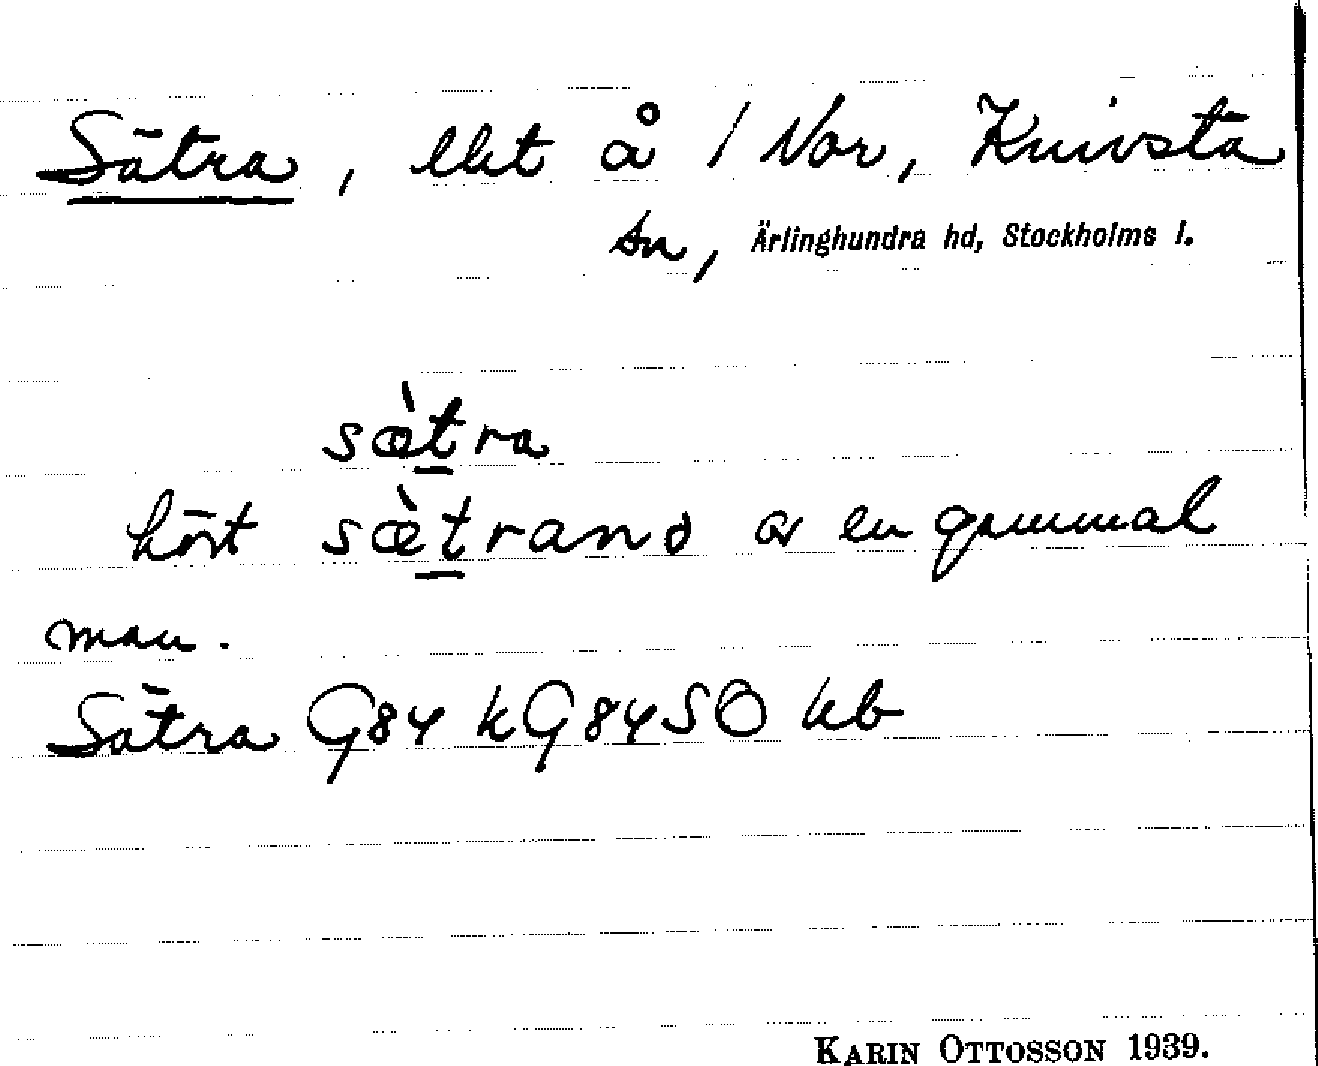 Sätra, lht å 1 Vor, Knivsta
sn, Ärlinghundra hd, Stockholms l.
sæ̀tra
hört sæ̀trand av en gammal
man.
Sätra G84 kG84SO hb
KARIN OTTOSSON 1939.